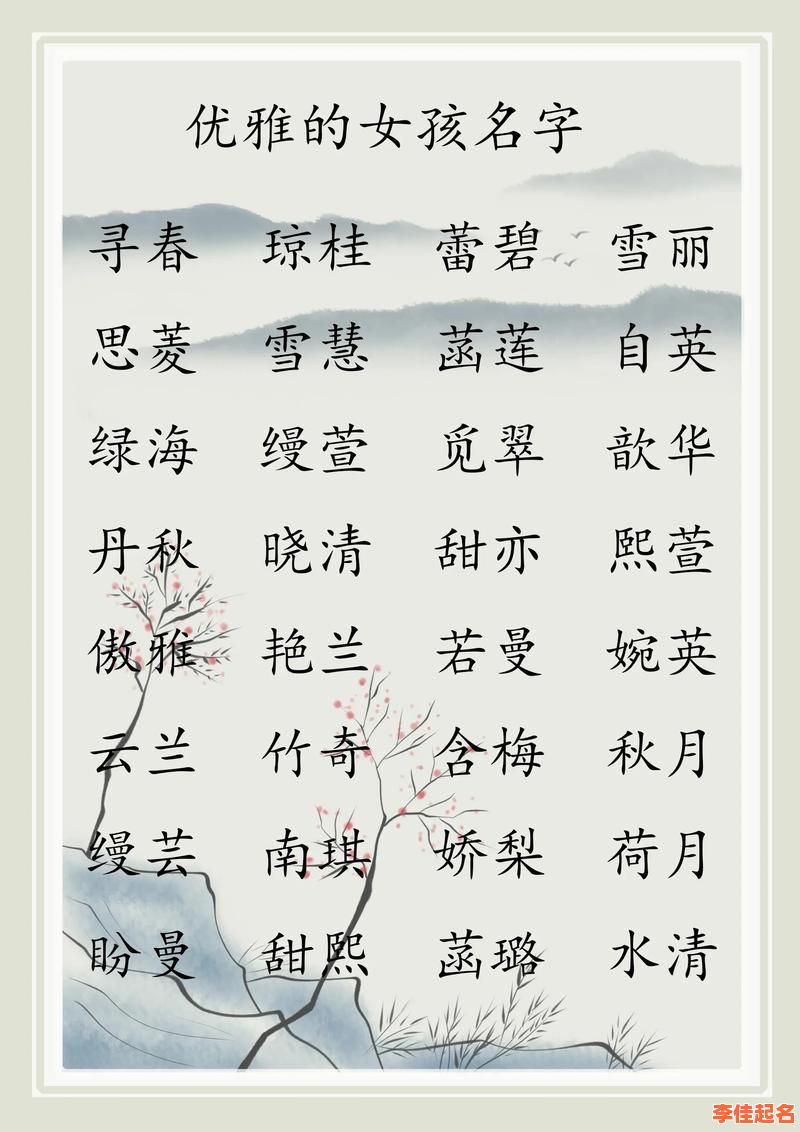 优雅的女孩名字
寻春 琼桂 蕾碧 雪丽
思菱 雪慧 菡莲 自英
绿海 缦萱 觅翠 歆华
丹秋 晓清 甜亦 熙萱
傲雅 艳兰 若曼 婉英
云兰 竹奇 含梅 秋月
缦芸 南琪 娇梨 荷月
盼曼 甜熙 菡璐 水清
李佳起名